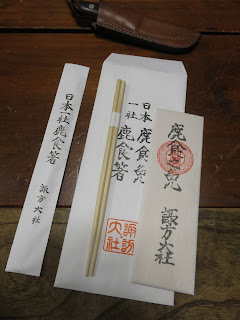 鹿食之免
諏方大社
日本 鹿食之免
一社 鹿食箸
諏訪
大社
日本一社鹿食箸
諏方大社